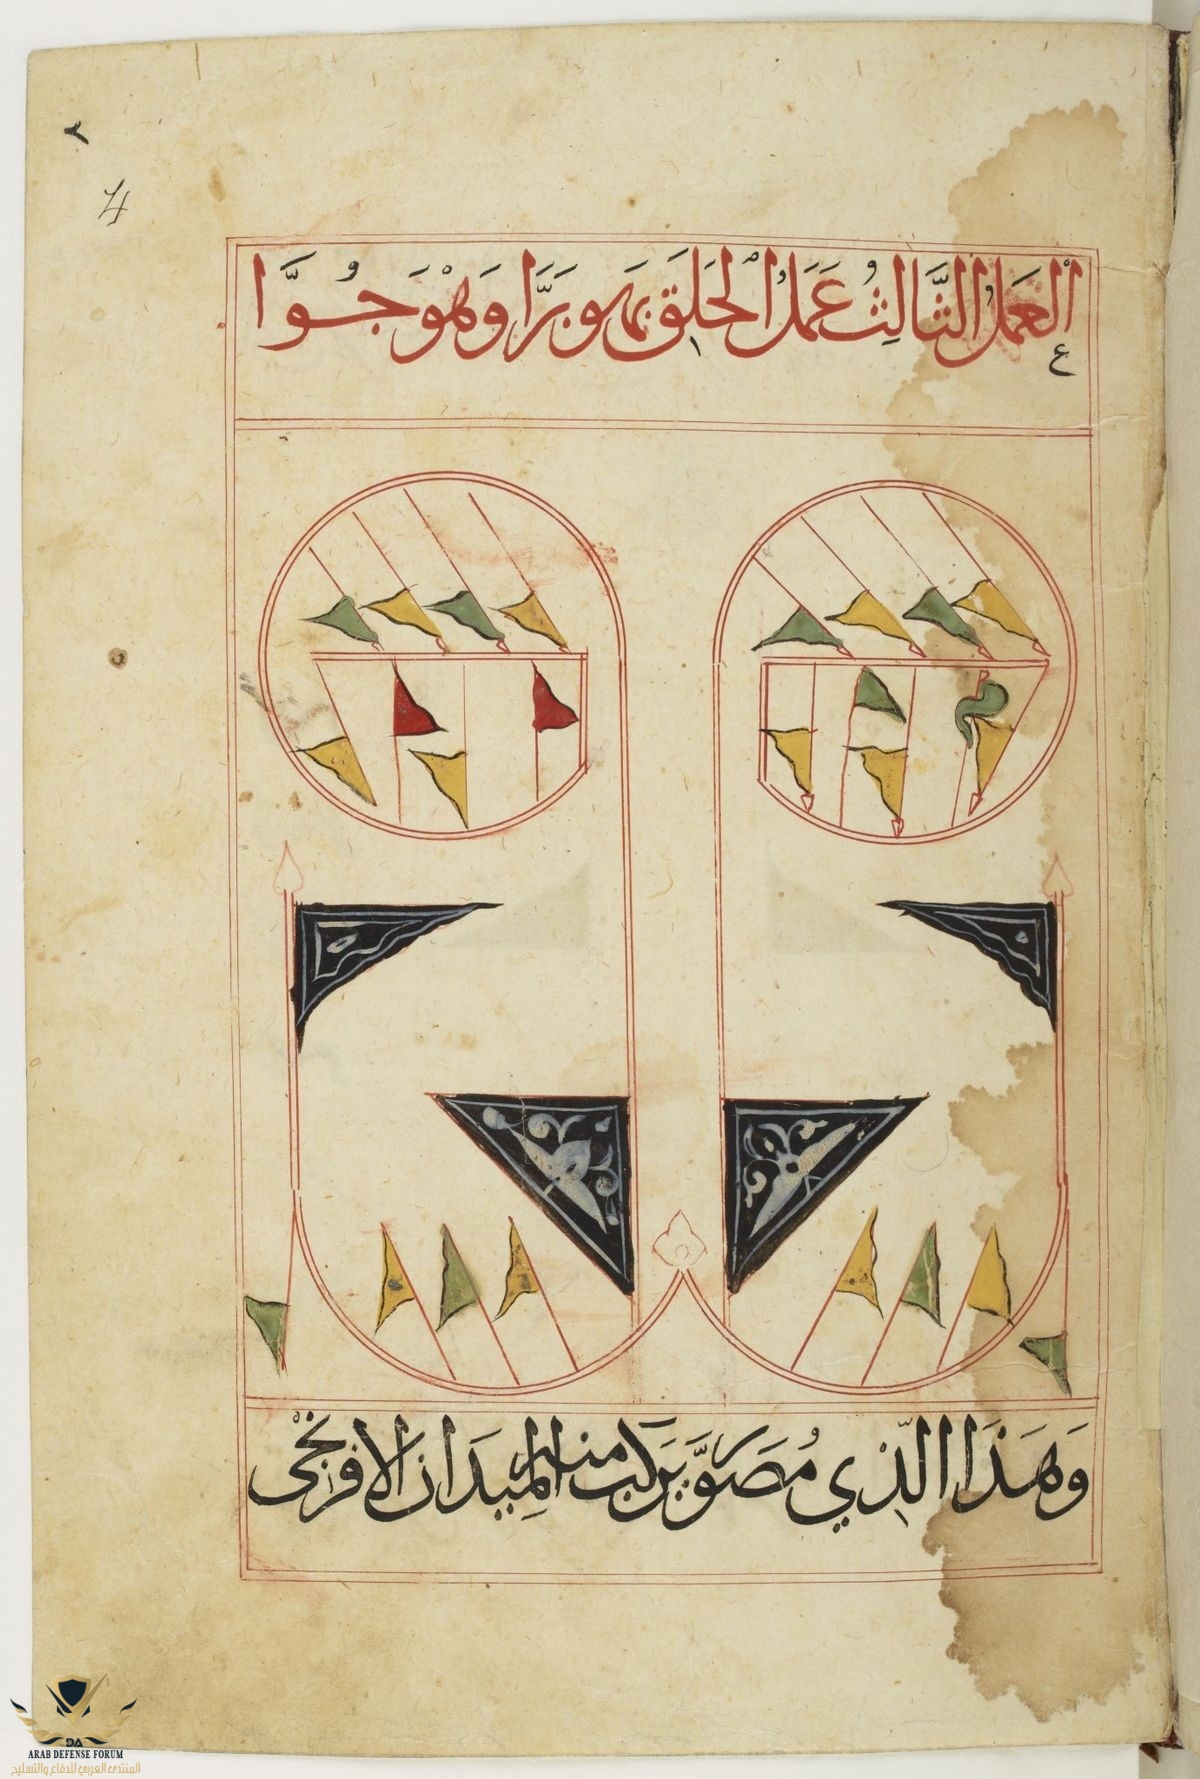 ٢
4
اْلعَمَلُ الثَّالِثُ عَمَلُ الْحَلَقِ بمَا هو بَرَّا وَهْوَ جُوَّا
ع
وَهَذَا الَّذِي مُصَوَّر يَركب منه المِيدَان الافرنجْى
DA
ARAB DEFENSE FORUM
المنتدى العربي للدفاع والتسليح